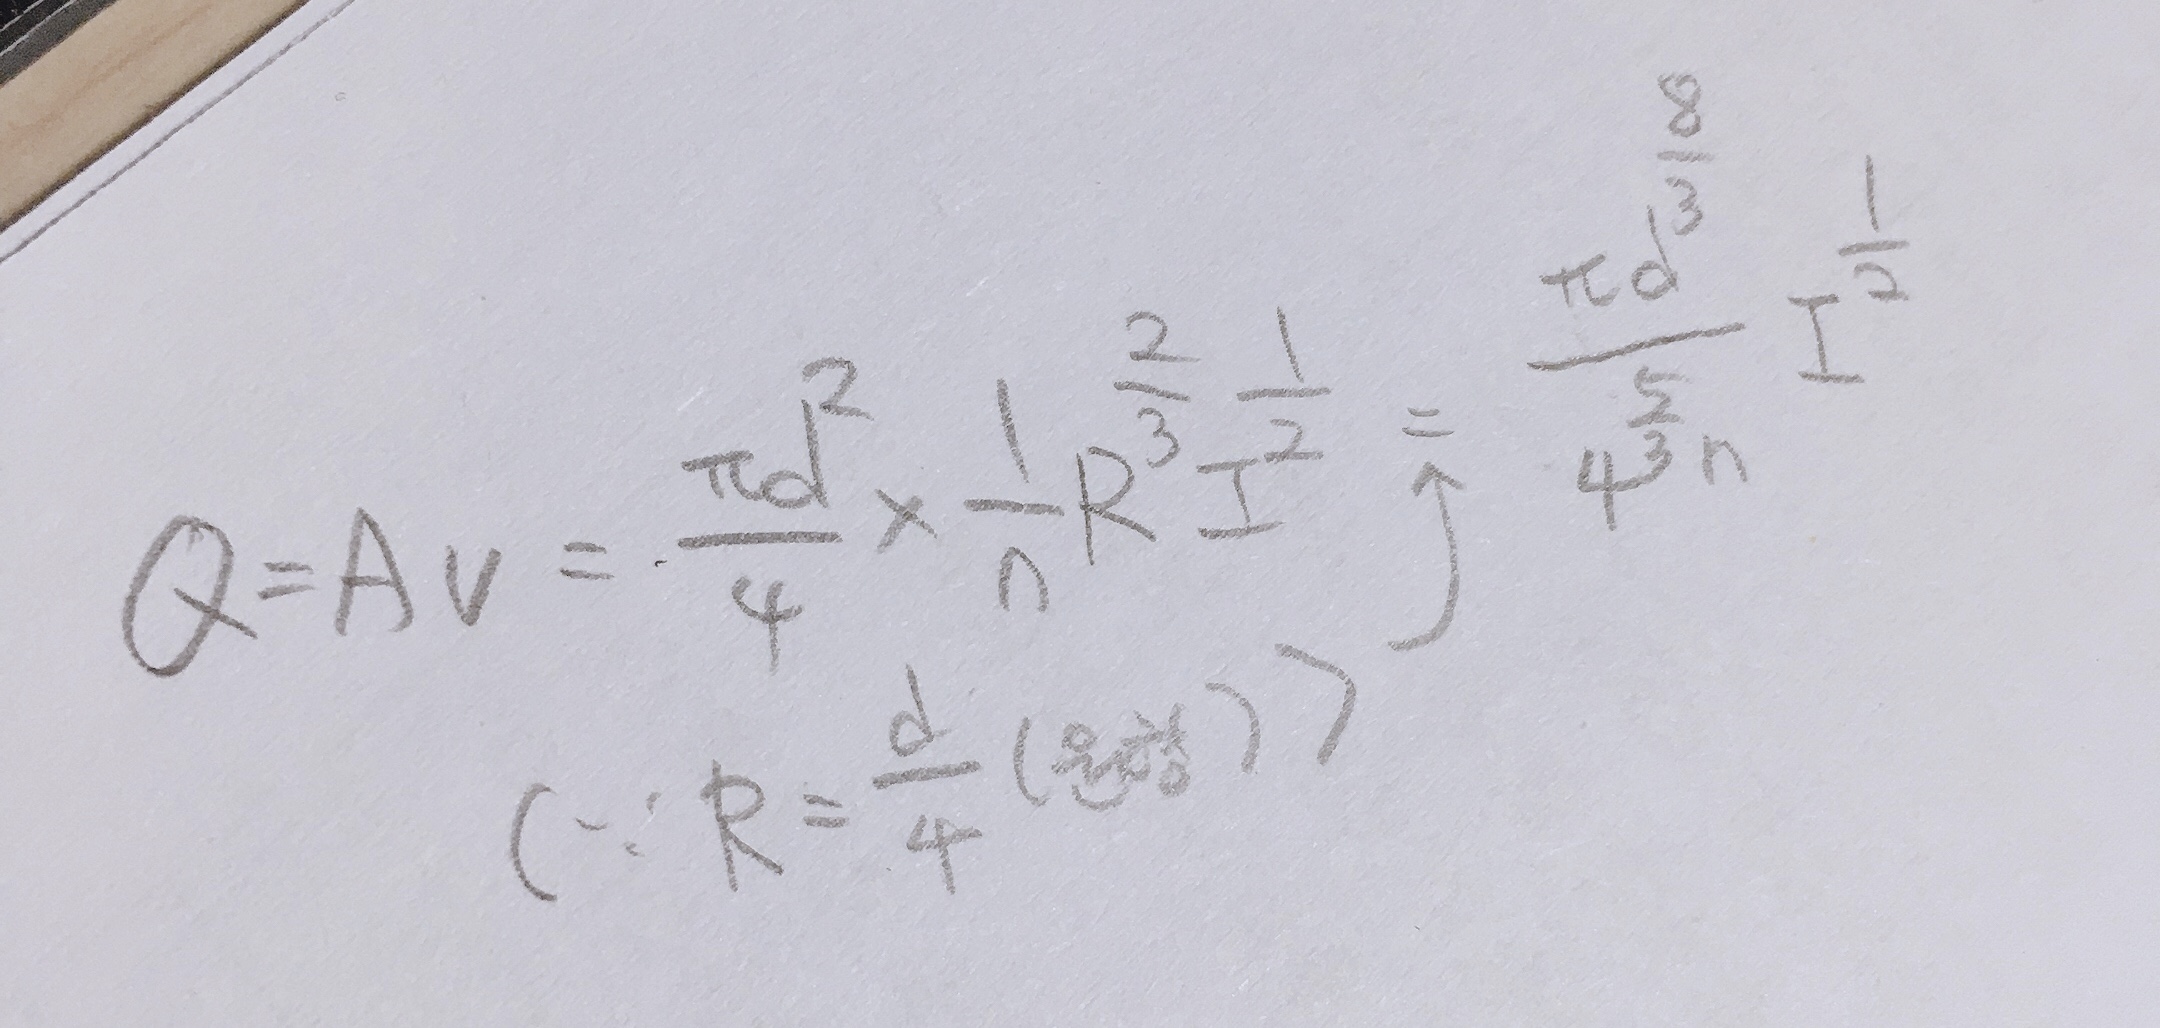 Q=Av = πd²/4 × 1/n R^(2/3) I^(1/2) = πd^(8/3)/(4^(5/3) n) I^(1/2)
(∵ R = d/4 (원형))